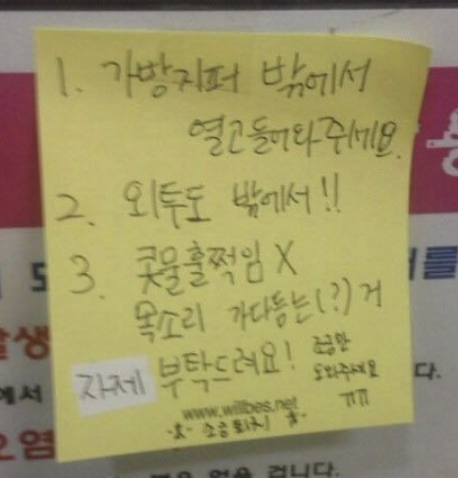 1. 가방지퍼 밖에서
열고들어와주세요.
2. 외투도 밖에서!!
3. 콧물훌쩍임 X
목소리 가다듬는(?)거
자제 부탁드려요! 조금만
도와주세요
ㅠㅠ
www.willbes.net
소음퇴치
를
발생
에서
다.
오염
겁니다.